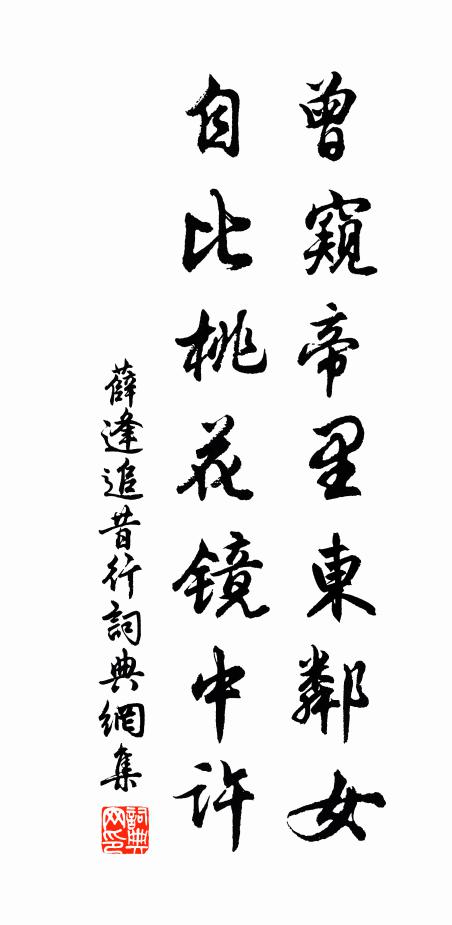 曾窺帝里東鄰女
自比桃花镜中许
薛逢追昔行詞典網集
詞典网印